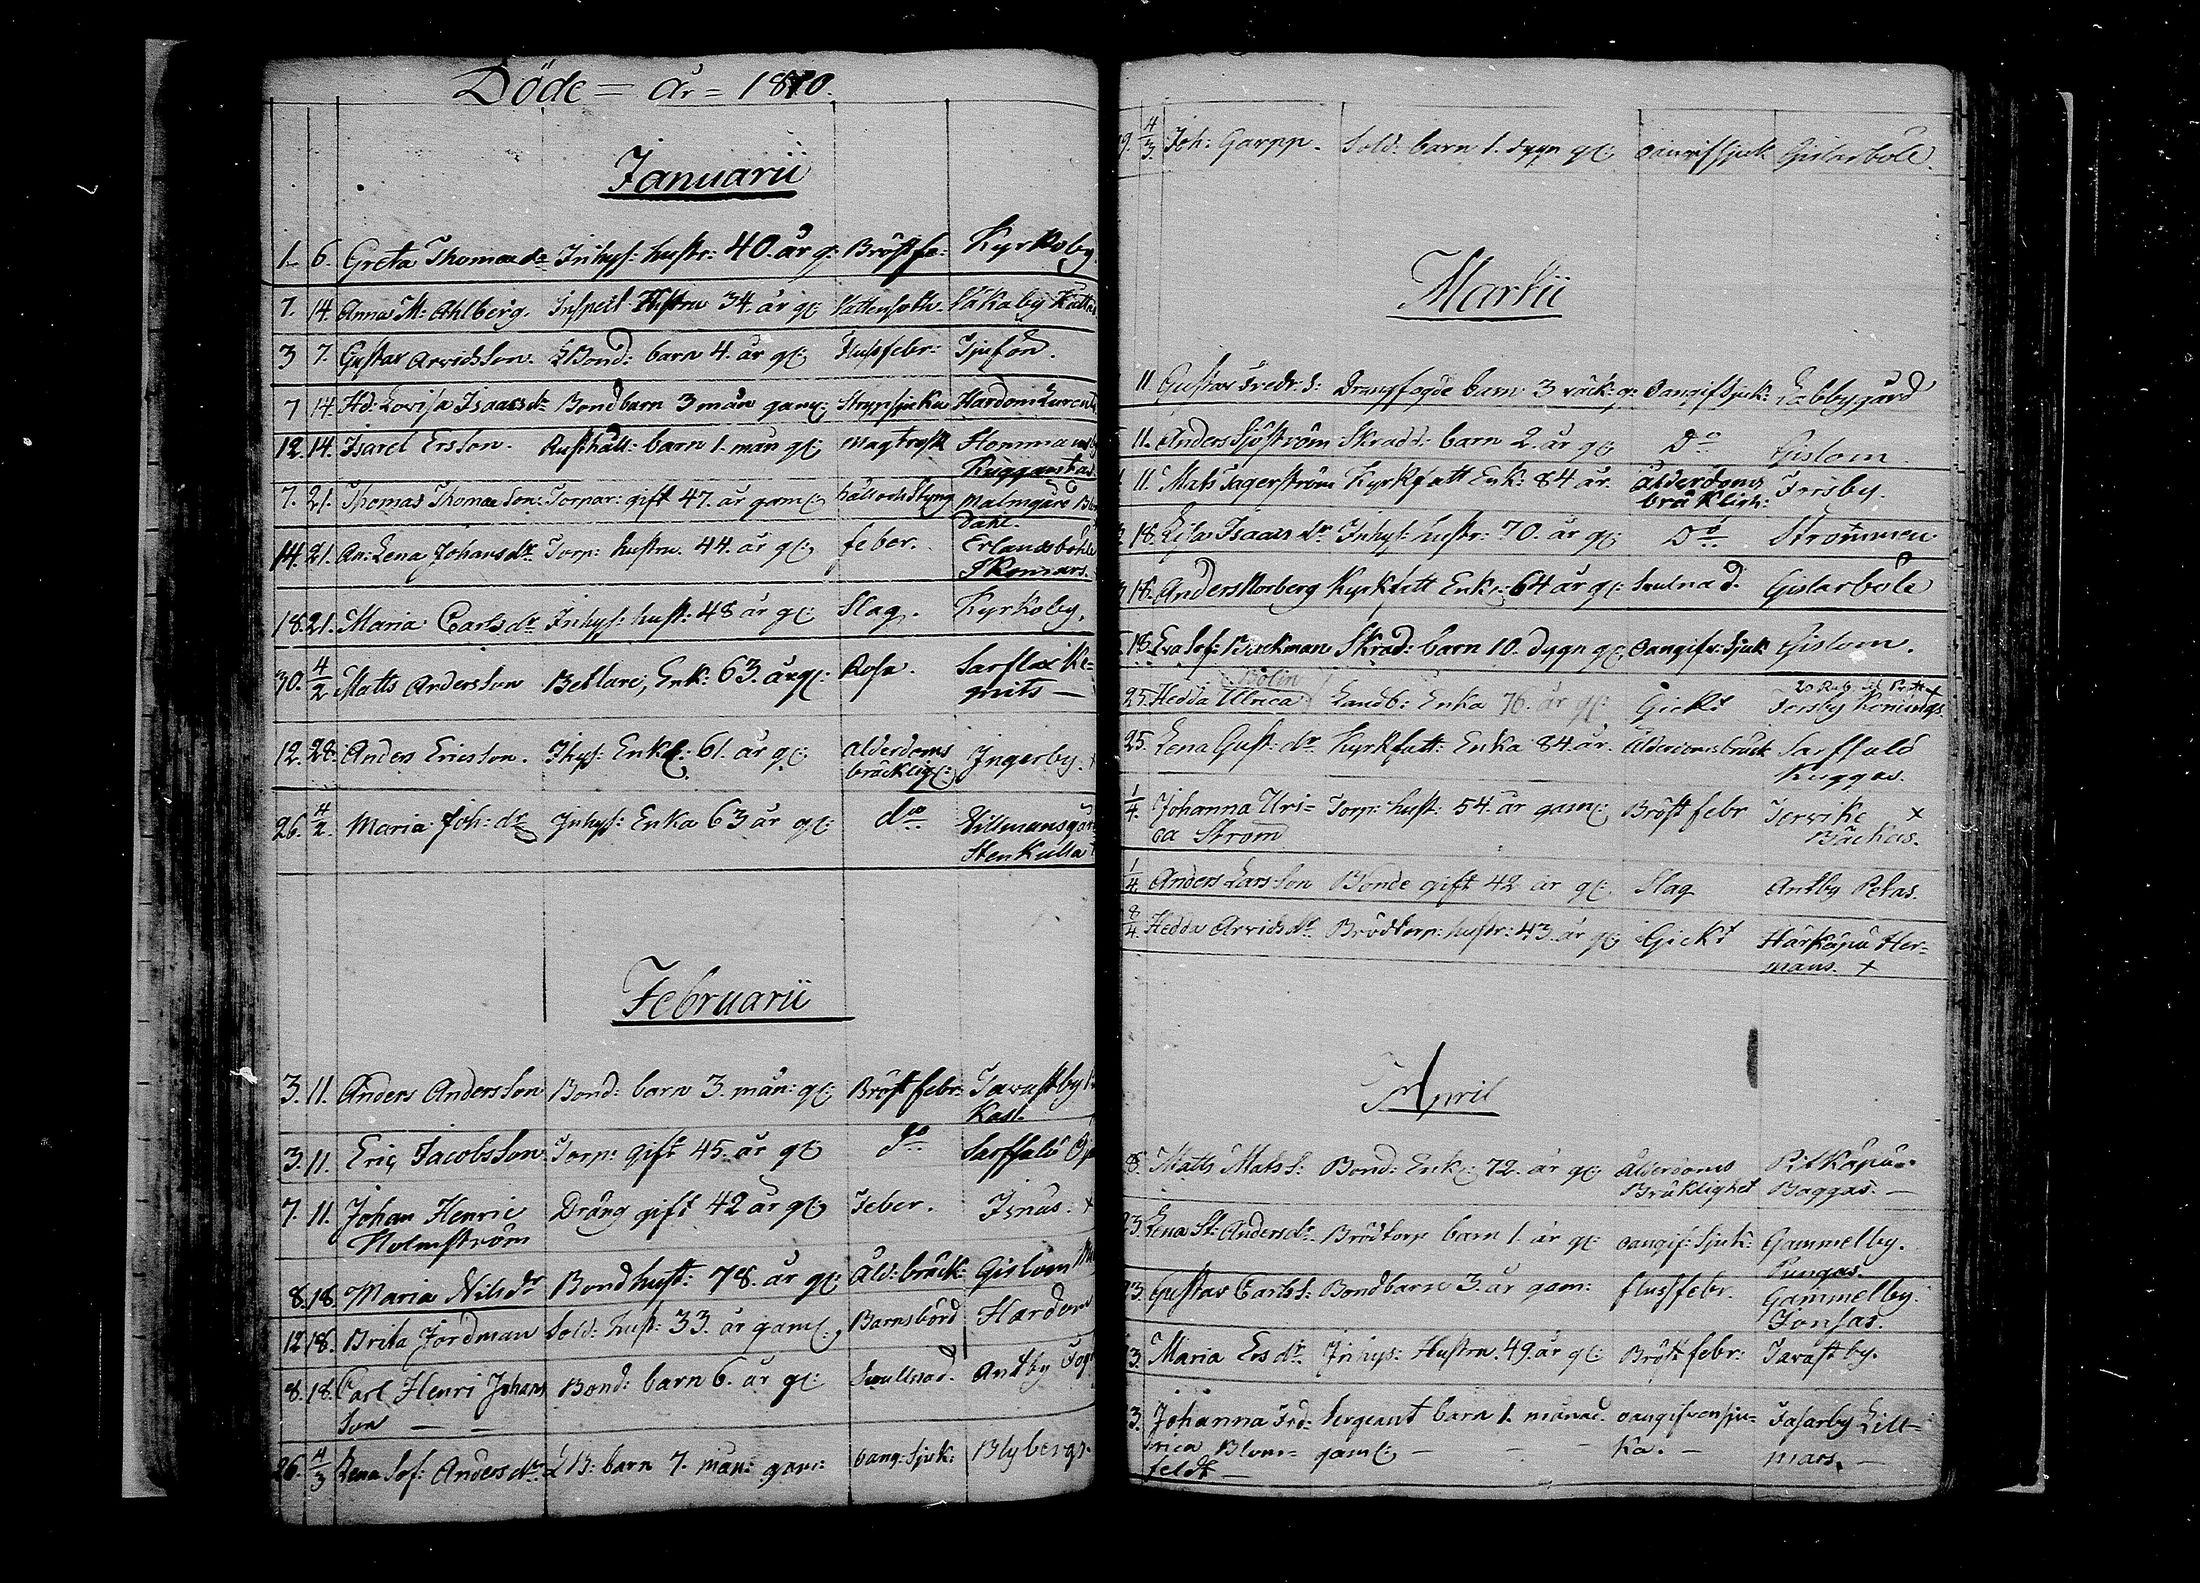 Döde = år = 1810.
Januarii
1. 6. Greta Thomasdr Inhys: hustr: 40. år g: Bröstfe: Kyrkoby.
7. 14. Anna M: Ahlberg. Inspect Hustru 34. år gl: Vattensoth
3 7. Gustav Arvidsson. Bond: barn 4. år gl: Flussfebr: Tjusön.
7 14. Hd: Lovisa Isaacsdr Bondbarn 3 mån gaml: Strypsjuka Hardom
12. 14. Isarel Ersson. Rusthåll: barn 1. mån gl: magtryck Homma
Kuggomtas
7. 21. Thomas Thomasson: Torpar: gift 47. år gaml: håll och styng Malmgård
Dahl.
14. 21. An: Lena Johansdr Torp: hustru 44. år gl: feber. Erlandsböhle
Skomars.
18. 21. Maria Carlsdr Inhys: hust: 48 år gl: Slag. Kyrkoby.
30. 4/2 Matts Andersson Betlare, Enk: 63. år gl: Rosn. Sarflax Ke=
gnits —
12. 28. Anders Ericsson. Ihys: Enkl: 61. år gl: alderdoms Ingerby. +
bräcklig:
26. 4/2. Maria Joh: dr Inhys: Enka 63 år gl: do Tillmansgår
Stenkulla +
Februarii
3. 11. Anders Andersson Bond: barn 3. mån: gl: Bröst febr: Tavastby
Kasl.
3. 11. Eric Jacobsson Torp: gift 45. år gl: do Sarfsalö
7. 11. Johan Henric Dräng gift 42 år gl: Feber. Isnäs. +
Holmström
8. 18. Maria Nilsdr Bondhust: 78. år gl: Ald: bräck: Gislom
12 18. Brita Jordman Sold: hust: 33. år gaml: Barnsbörd Hardom
8. 18. Carl Henri Johans Bond: barn 6. år gl: Svullnad. Antby
son — —
26. 4/3 Lena Sof: Andersdr LB: barn 7. mån: gam: oang: Sjuk: Blybergs.
9. 4/3. Joh: Garpp. Sold: barn 1. dygn gl: oangifsjuk Gislarböle.
Martii
11. Gustav Fredr. s: Drängfogde barn 3 veck: g: Oangifsjuk: Labbygård
11. Anders Sjöström Skradd: barn 2. år gl: Do Gislom
11. Mats Jagerström Kyrkfatt Enk: 84 år. Ålderdoms Frisby.
bräkligh:
18. Lisa Isaacs dr Inhys: hustr: 70. år gl: Do Strömmen
18. Anders Norberg Kyrkfatt Enk: 64 år gl: Svulnad. Gislarböle
18. Eva Sof: Beckman Skrad: barn 10. dygn gl: Oangifv: Sjuk Gislom.
Bolin
25. Hedda Ulrica Landb: Enka 76. år gl: Gickt Torsby Konungs
25. Lena Gust: dr Kyrkfatt: Enka 84. år. Alderdomsbräck Sarfsalö
Kuggas.
1/4. Johanna Ulri= Torp: hust: 54. år gaml: Bröst febr Tervike +
ca Ström Bäckas.
1/4. Anders Larsson Bonde gift 42 år gl: Slag Antby Petas.
8/4. Hedda Arvidsdr Brödtorp: hustr: 43. år gl: Gickt Härköpu Her=
mans. +
April
8. Matts Mats S: Bond: Enkl: 72. år gl: Alderdoms Ritköpu.
Bräklighet Baggas. —
23. Lena St: Andersdr Brödtorp barn 1. år gl: oangif: Sjuk: Gammelby.
Pungas.
23. Gustav Carls S: Bondbarn 3. år gam: flussfebr. Gammelby.
Jonsas.
3. Maria Ers dr Inhys: Hustru. 49. år gl: Bröst febr: Tavastby.
3. Johanna Fred= Sergeant barn 1. månad. oangifven sju= Fasarby Lill=
rica Blom= gaml: — — — ka. — mars. —
feldt —